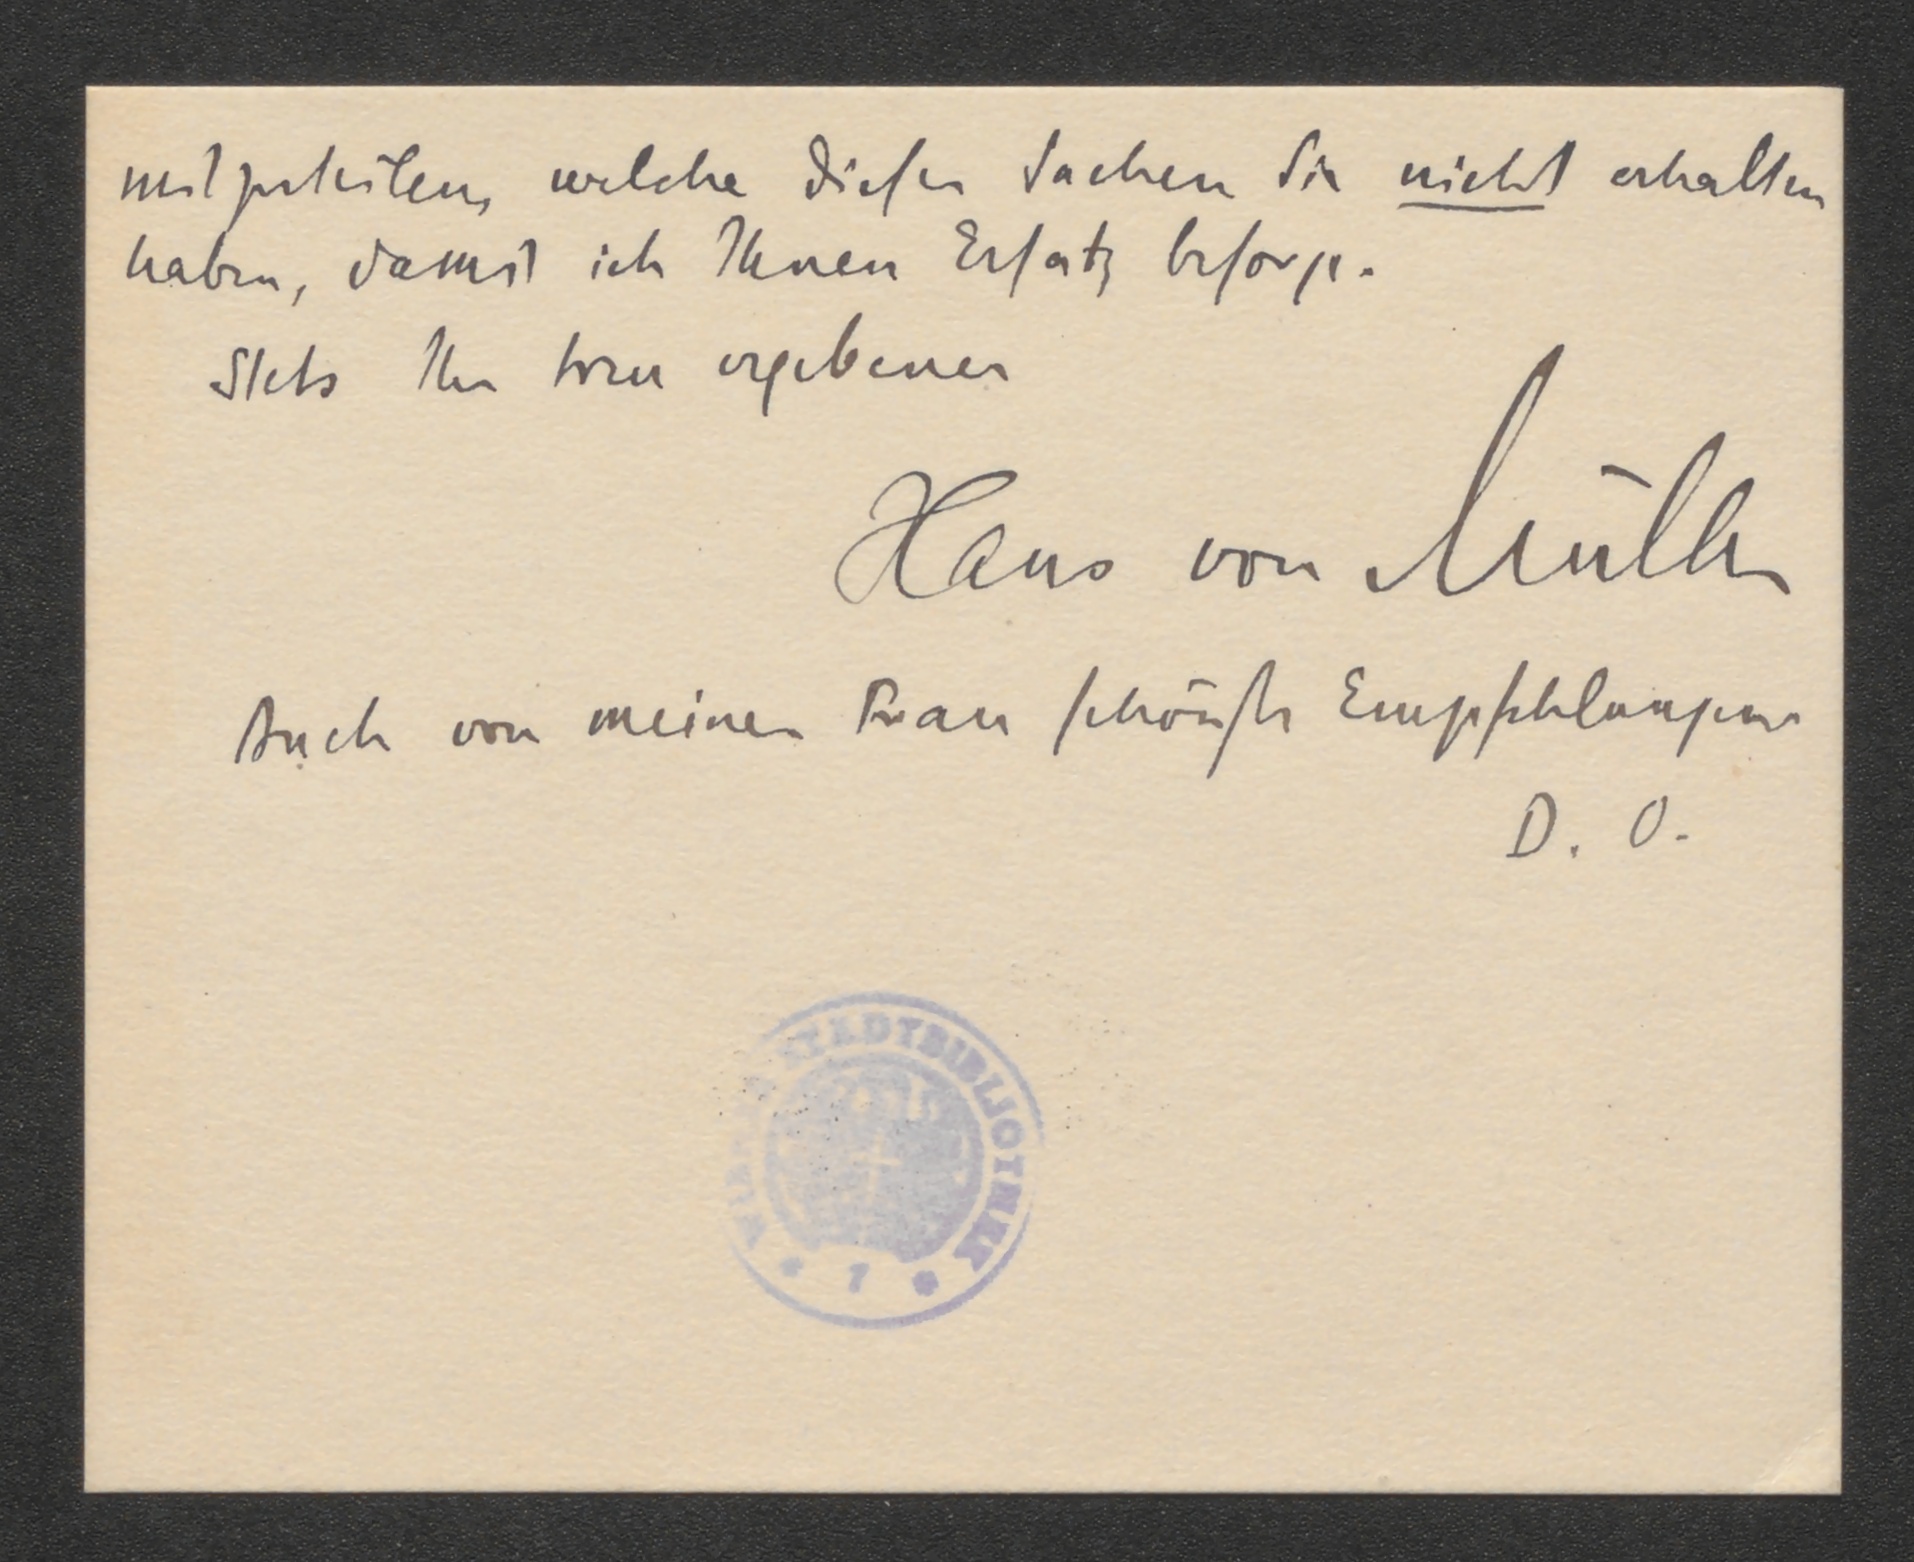 mitzuteilen, welche dieser Sachen Sie nicht erhalten
haben, damit ich Ihnen Ersatz besorge.
Stets Ihr treu ergebener
Hans von Müller
Auch von meiner Frau schönste Empfehlungen
D. O.
STADTBIBLIOTHEK
* 7 *